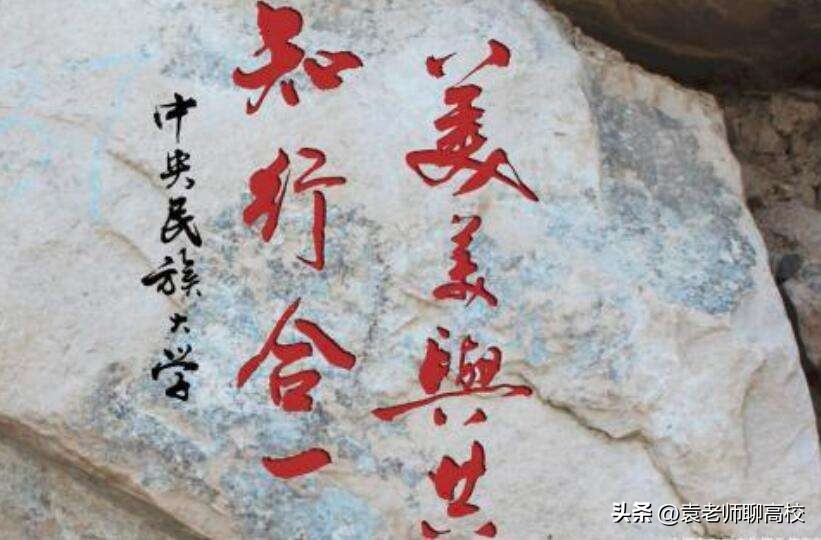 美美與共
知行合一
中央民族大学
头条 @袁老师聊高校